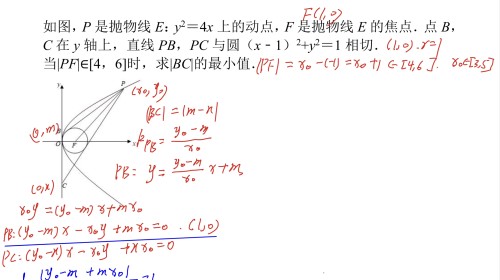 F(1,0)
如图，P 是抛物线 E: y²=4x 上的动点，F 是抛物线 E 的焦点．点 B，
C 在 y 轴上，直线 PB，PC 与圆（x - 1）²+y²＝1 相切． (1,0). r=1
当|PF|∈[4，6]时，求|BC|的最小值． |PF| = x₀-(-1) = x₀+1 ∈ [4,6]. x₀∈[3,5]
y
P
(x₀, y₀)
|BC| = |m-n|
(0,m)
B
O
F
x
k_PB = (y₀-m)/x₀
PB: y = (y₀-m)/x₀ x + m
C
(0,n)
x₀y = (y₀-m)x + mx₀
PB: (y₀-m)x - x₀y + mx₀ = 0 . (1,0)
PC: (y₀-n)x - x₀y + nx₀ = 0
|y₀-m + mx₀|